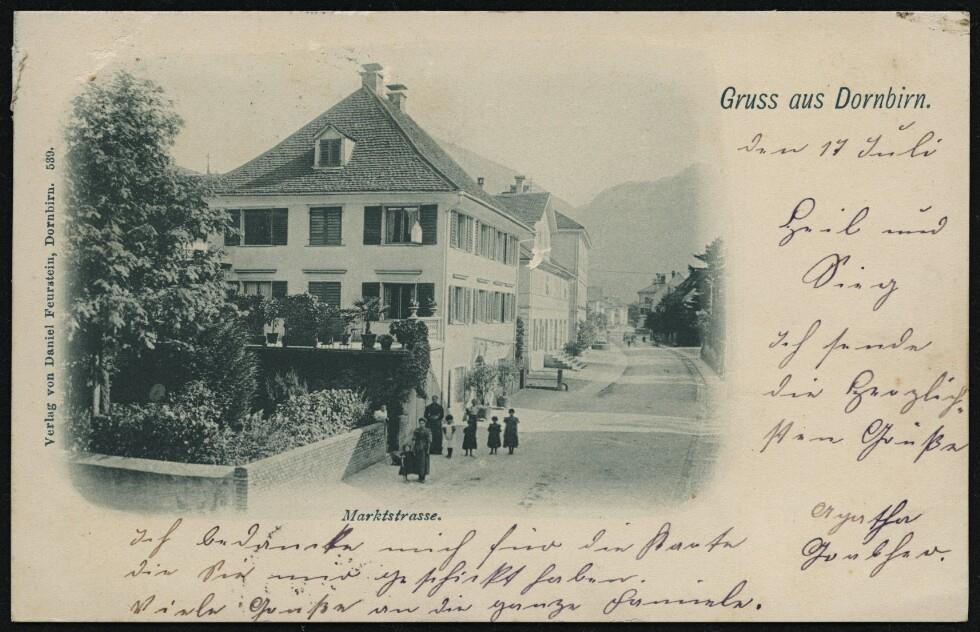 Gruss aus Dornbirn.
den 17 Juli
Heil und
Sieg
Ich sende
die Herzlich-
sten Grüße
Agatha
Verlag von Daniel Feurstein, Dornbirn. 539.
Marktstrasse.
Ich bedancke mich für die Karte
die Sie mir geschickt haben.
Viele Grüße an die ganze Famiele.